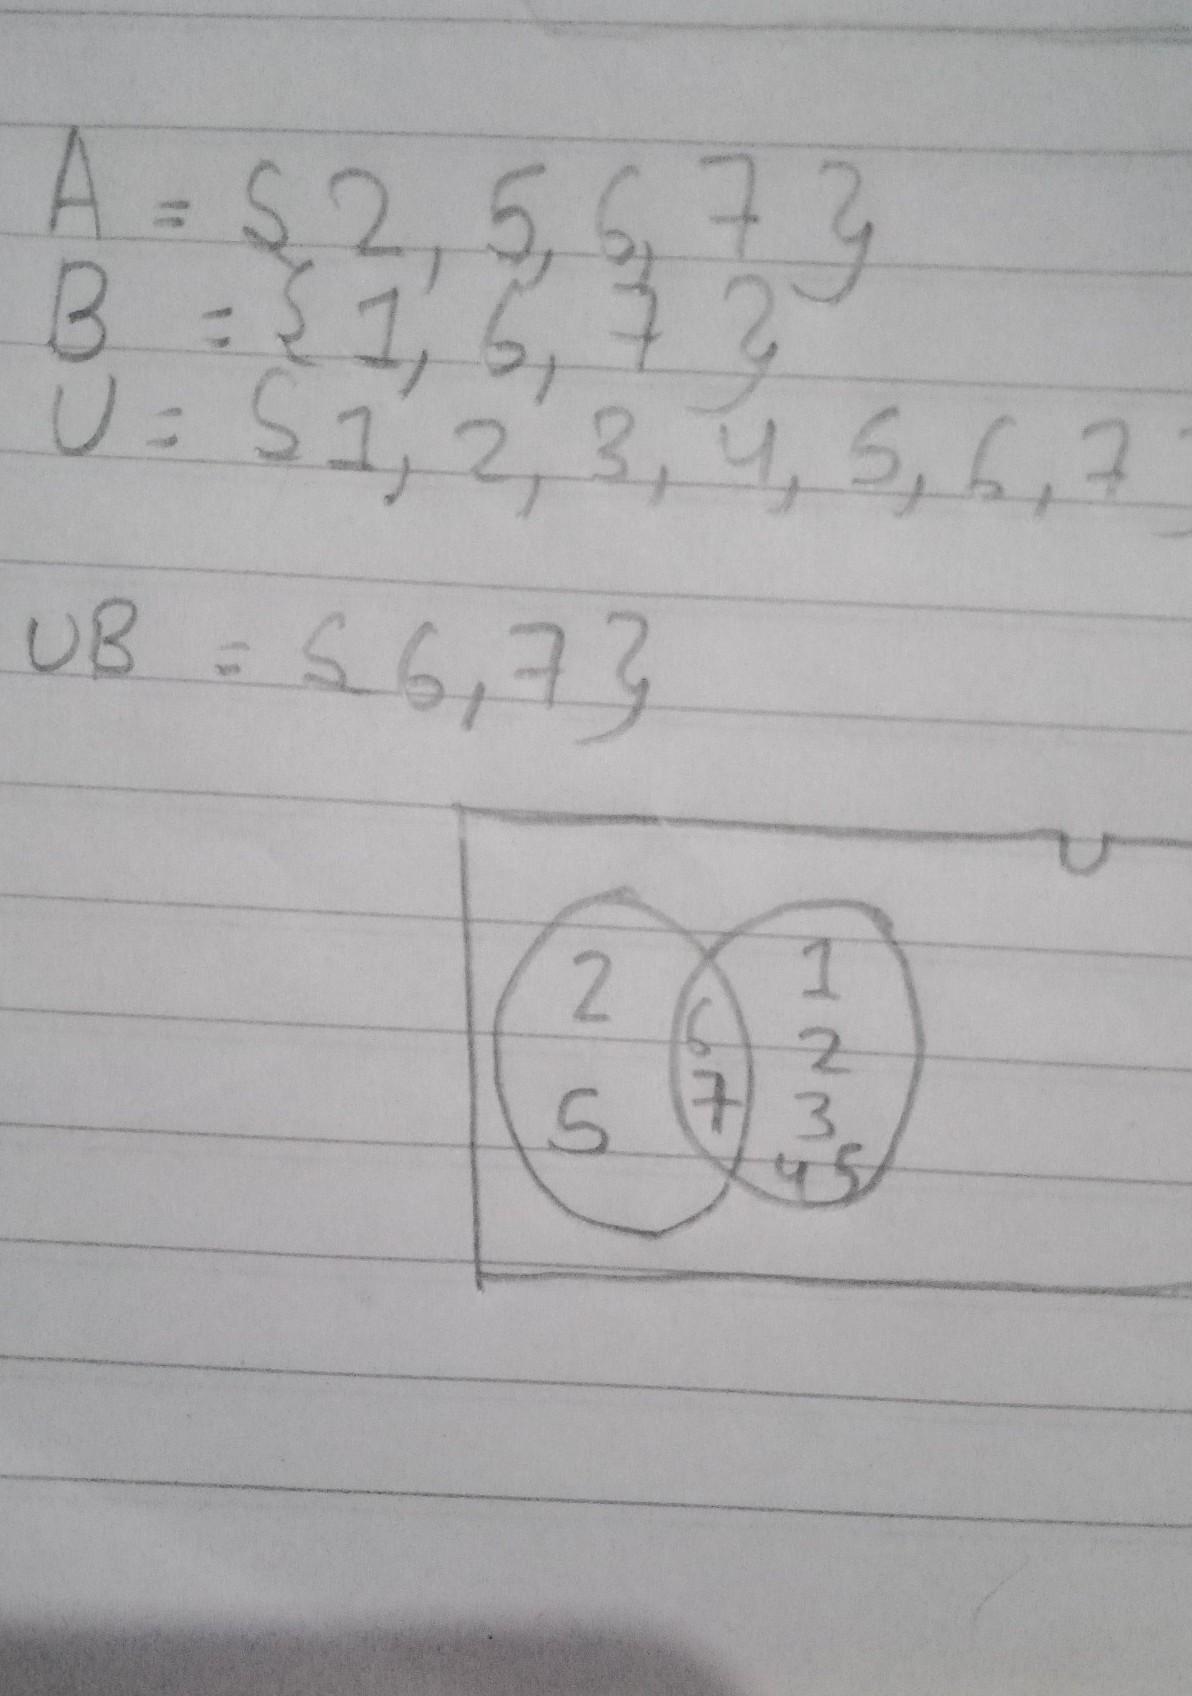 A = { 2, 5, 6, 7 }
B = { 1, 6, 7 }
U = { 1, 2, 3, 4, 5, 6, 7 }
UB = { 6, 7 }
U
2 6 1
5 7 2
3
4 5